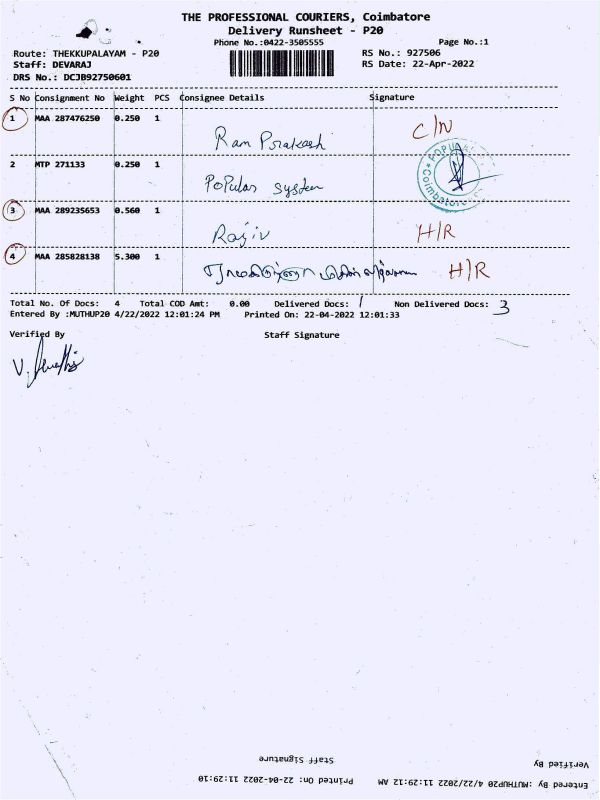 THE PROFESSIONAL COURIERS, Coimbatore
Delivery Runsheet - P20
Phone No.:0422-3505555
Page No.:1
Route: THEKKUPALAYAM - P20
RS No.: 927506
Staff: DEVARAJ
RS Date: 22-Apr-2022
DRS No.: DCJB92750601
S No Consignment No Weight PCS Consignee Details Signature
1 MAA 287476250 0.250 1 Ram Prakash C/N
2 MTP 271133 0.250 1 Popular System
POPULAR Coimbatore
3 MAA 289235653 0.560 1 Rajiv H/R
4 MAA 285828138 5.300 1 H/R
Total No. Of Docs: 4 Total COD Amt: 0.00 Delivered Docs: 1 Non Delivered Docs: 3
Entered By :MUTHUP20 4/22/2022 12:01:24 PM Printed On: 22-04-2022 12:01:33
Verified By Staff Signature
Staff Signature Verified By
Printed On: 22-04-2022 11:29:10 Entered By :MUTHUP20 4/22/2022 11:29:12 AM